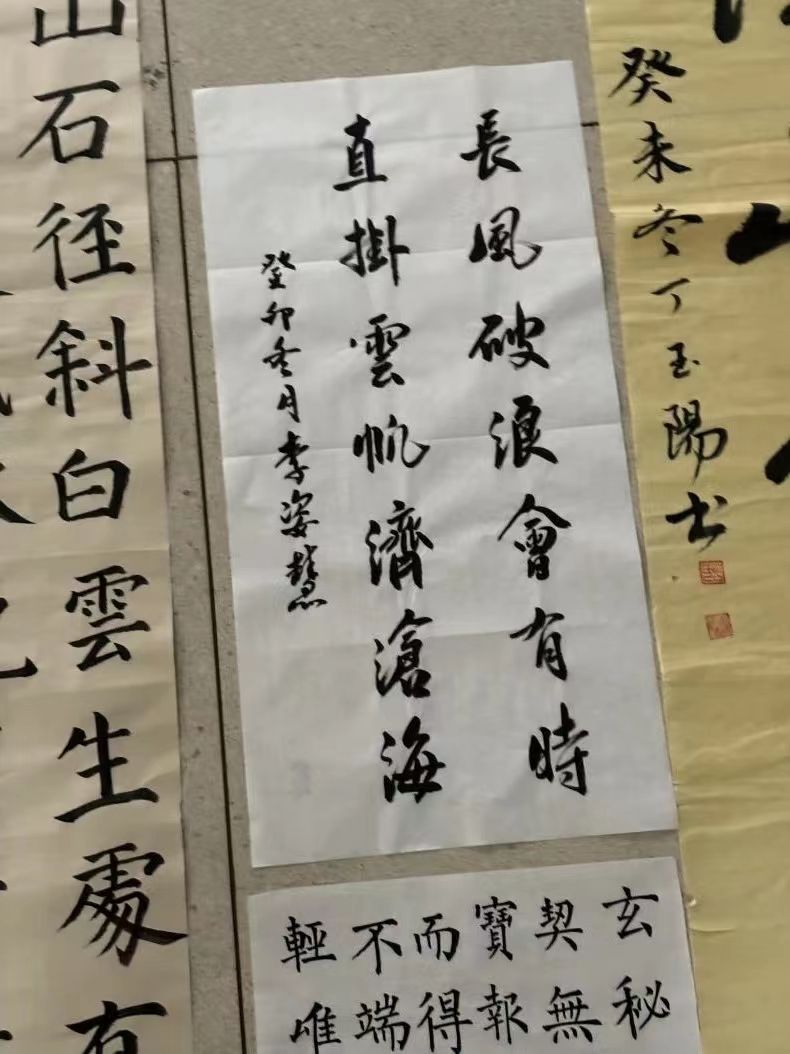 癸未冬丁玉陽书
長風破浪會有時
直掛雲帆濟滄海
癸卯冬月李姿慧
山石径斜白雲生處有
玄秘
契無
寶報
而得
不端
輕唯